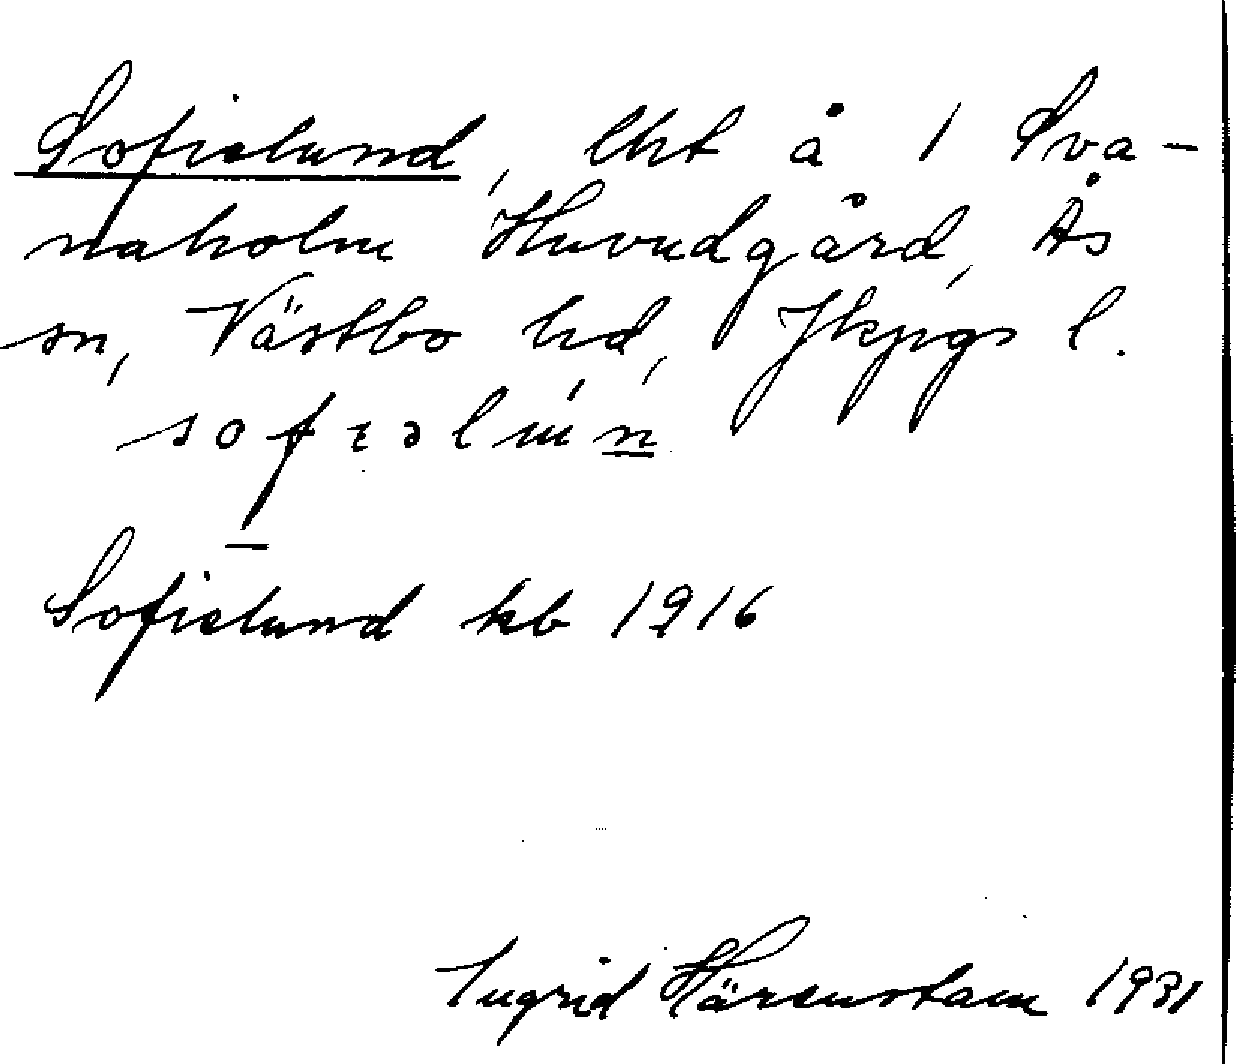 Sofielund, lht å 1 Sva-
naholm Huvudgård, Ås
sn, Västbo hd, Jkpgs l.
Sofielund kb 1916
Ingrid Härenstam 1931